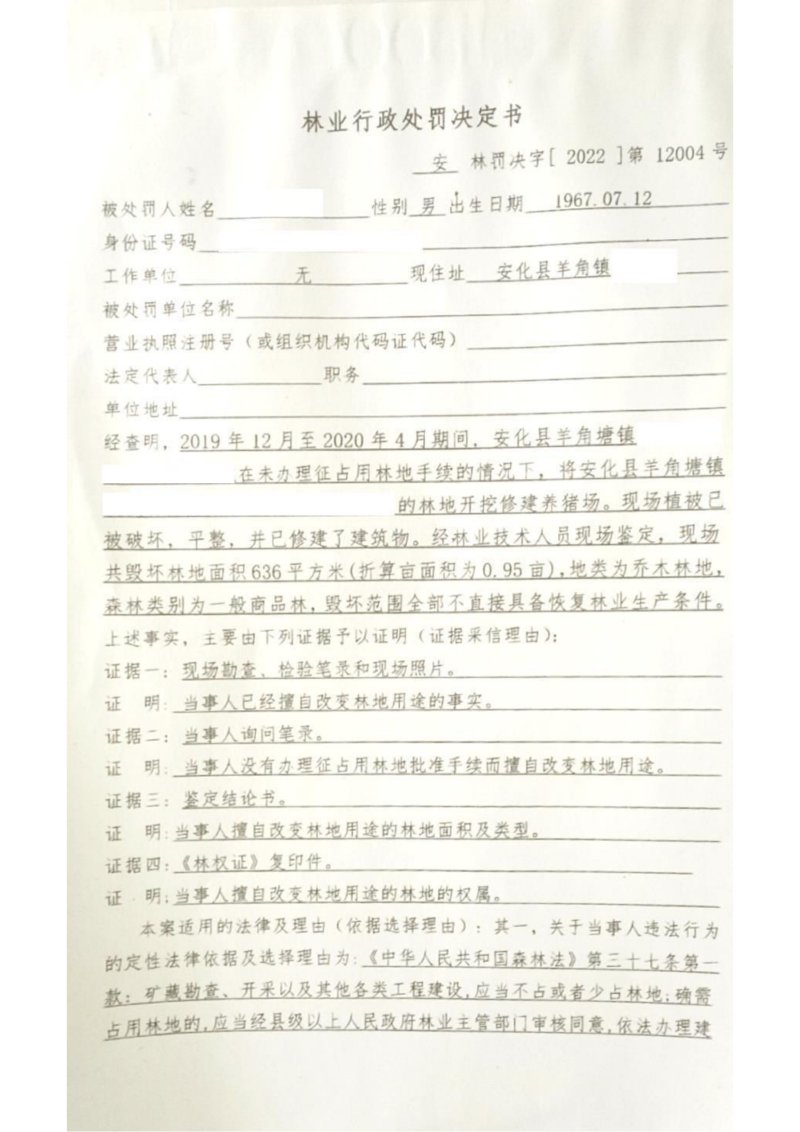 林业行政处罚决定书
安 林罚决字[ 2022 ]第 12004 号
被处罚人姓名 性别 男 出生日期 1967.07.12
身份证号码
工作单位 无 现住址 安化县羊角镇
被处罚单位名称
营业执照注册号（或组织机构代码证代码）
法定代表人 职务
单位地址
经查明，2019 年 12 月至 2020 年 4 月期间，安化县羊角塘镇
在未办理征占用林地手续的情况下，将安化县羊角塘镇
的林地开挖修建养猪场。现场植被已
被破坏，平整，并已修建了建筑物。经林业技术人员现场鉴定，现场
共毁坏林地面积 636 平方米(折算亩面积为 0.95 亩),地类为乔木林地，
森林类别为一般商品林，毁坏范围全部不直接具备恢复林业生产条件。
上述事实，主要由下列证据予以证明（证据采信理由）：
证据一：现场勘查、检验笔录和现场照片。
证 明：当事人已经擅自改变林地用途的事实。
证据二：当事人询问笔录。
证 明：当事人没有办理征占用林地批准手续而擅自改变林地用途。
证据三：鉴定结论书。
证 明：当事人擅自改变林地用途的林地面积及类型。
证据四：《林权证》复印件。
证 明：当事人擅自改变林地用途的林地的权属。
本案适用的法律及理由（依据选择理由）：其一，关于当事人违法行为
的定性法律依据及选择理由为：《中华人民共和国森林法》第三十七条第一
款：矿藏勘查、开采以及其他各类工程建设,应当不占或者少占林地;确需
占用林地的,应当经县级以上人民政府林业主管部门审核同意,依法办理建